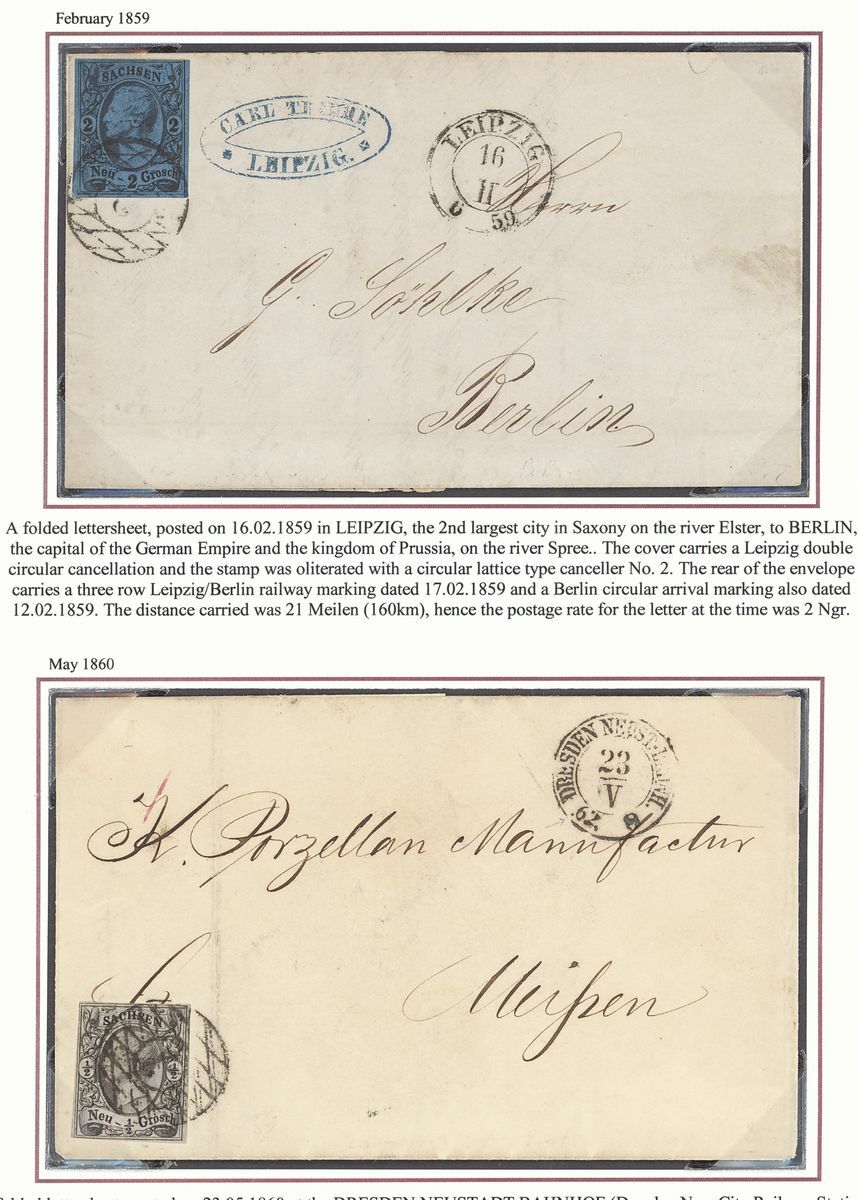 February 1859
SACHSEN
2 2
Neu - 2 Grosch
CARL
LEIPZIG.
LEIPZIG
16
II
59
Herrn
G. Söhlke
Berlin
A folded lettersheet, posted on 16.02.1859 in LEIPZIG, the 2nd largest city in Saxony on the river Elster, to BERLIN,
the capital of the German Empire and the kingdom of Prussia, on the river Spree.. The cover carries a Leipzig double
circular cancellation and the stamp was oliterated with a circular lattice type canceller No. 2. The rear of the envelope
carries a three row Leipzig/Berlin railway marking dated 17.02.1859 and a Berlin circular arrival marking also dated
12.02.1859. The distance carried was 21 Meilen (160km), hence the postage rate for the letter at the time was 2 Ngr.
May 1860
DRESDEN
23
V
62
K. Porzellan Manufactur
Meißen
SACHSEN
½ ½
Neu - ½ Grosch